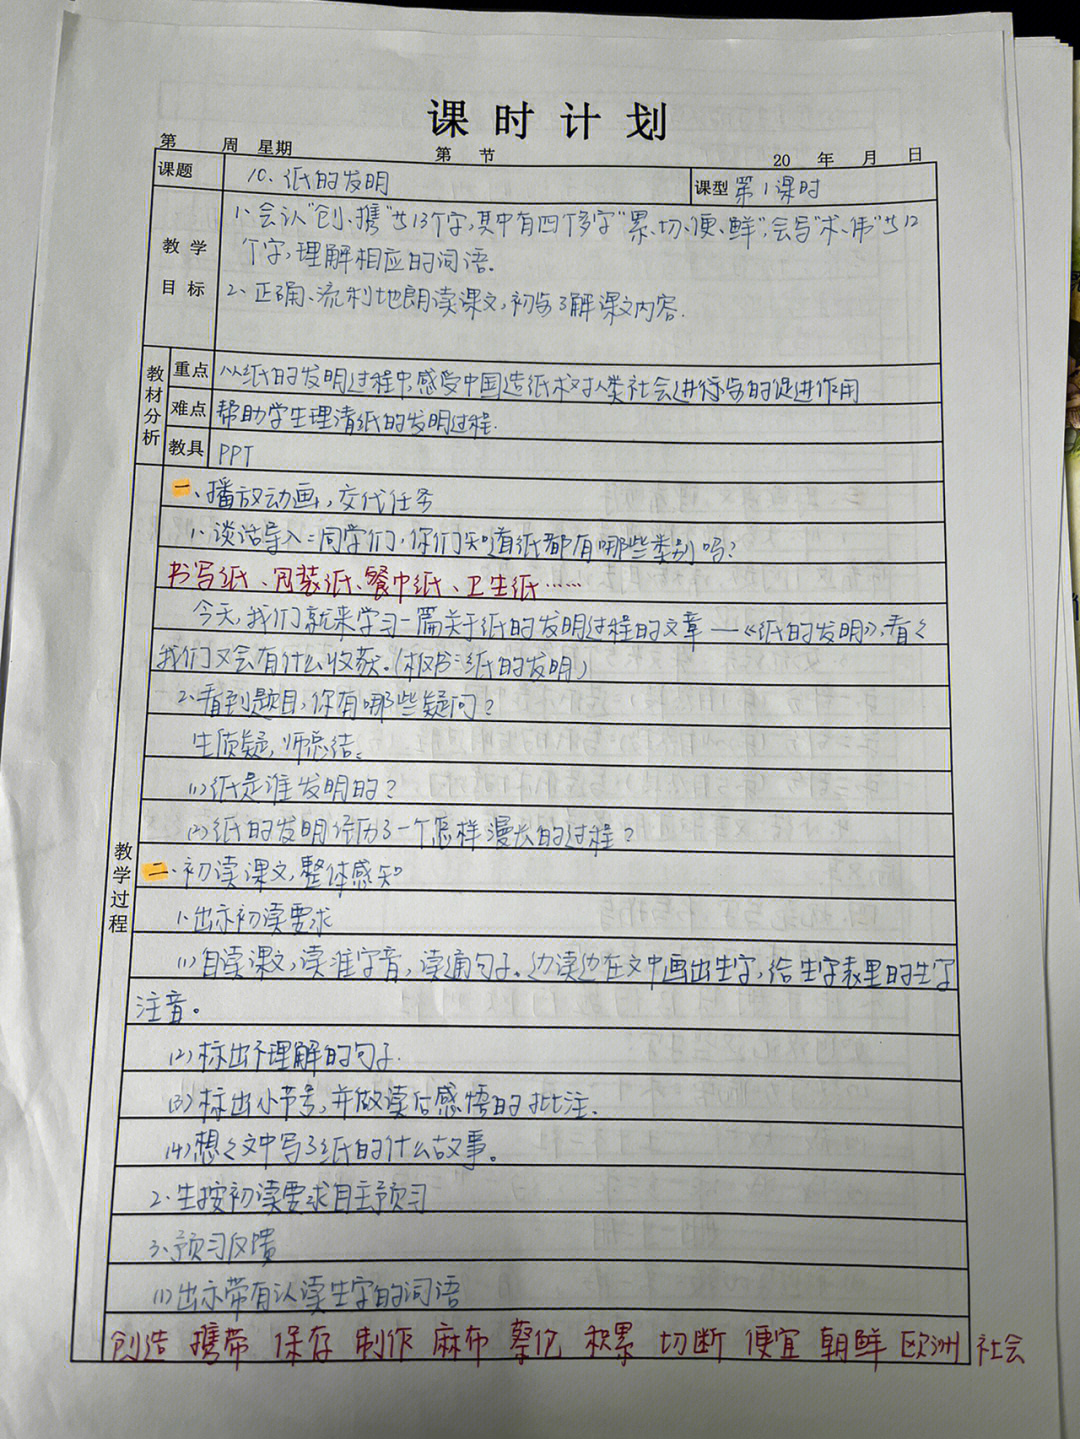 课时计划
第 周 星期 第 节 20 年 月 日
课题 10、纸的发明 课型 第1课时
教学目标 1、会认“创、携”共13个字,其中有四个多字“累、切、便、鲜”,会写“术、伟”共12
个字,理解相应的词语.
2、正确、流利地朗读课文,初步了解课文内容.
教材分析 重点 从纸的发明过程中,感受中国造纸术对人类社会进步的促进作用
难点 帮助学生理清纸的发明过程.
教具 PPT
教学过程
一、播放动画,交代任务
1、谈话导入:同学们,你们知道纸都有哪些类别吗?
书写纸、包装纸、餐巾纸、卫生纸……
今天,我们就来学习一篇关于纸的发明过程的文章——《纸的发明》,看々
我们又会有什么收获。(板书:纸的发明)
2、看到题目,你有哪些疑问?
生质疑,师总结。
(1)纸是谁发明的?
(2)纸的发明经历了一个怎样漫长的过程?
二、初读课文,整体感知
1、出示初读要求
(1)自读课文,读准字音,读通句子。边读边在文中画出生字,给生字表里的生字
注音。
(2)标出不理解的句子.
(3)标出小节号,并做读后感悟的批注.
(4)想々文中写了纸的什么故事。
2、生按初读要求自主预习
3、预习反馈
(1)出示带有认读生字的词语
创造 携带 保存 制作 麻布 蔡伦 积累 切断 便宜 朝鲜 欧洲 社会